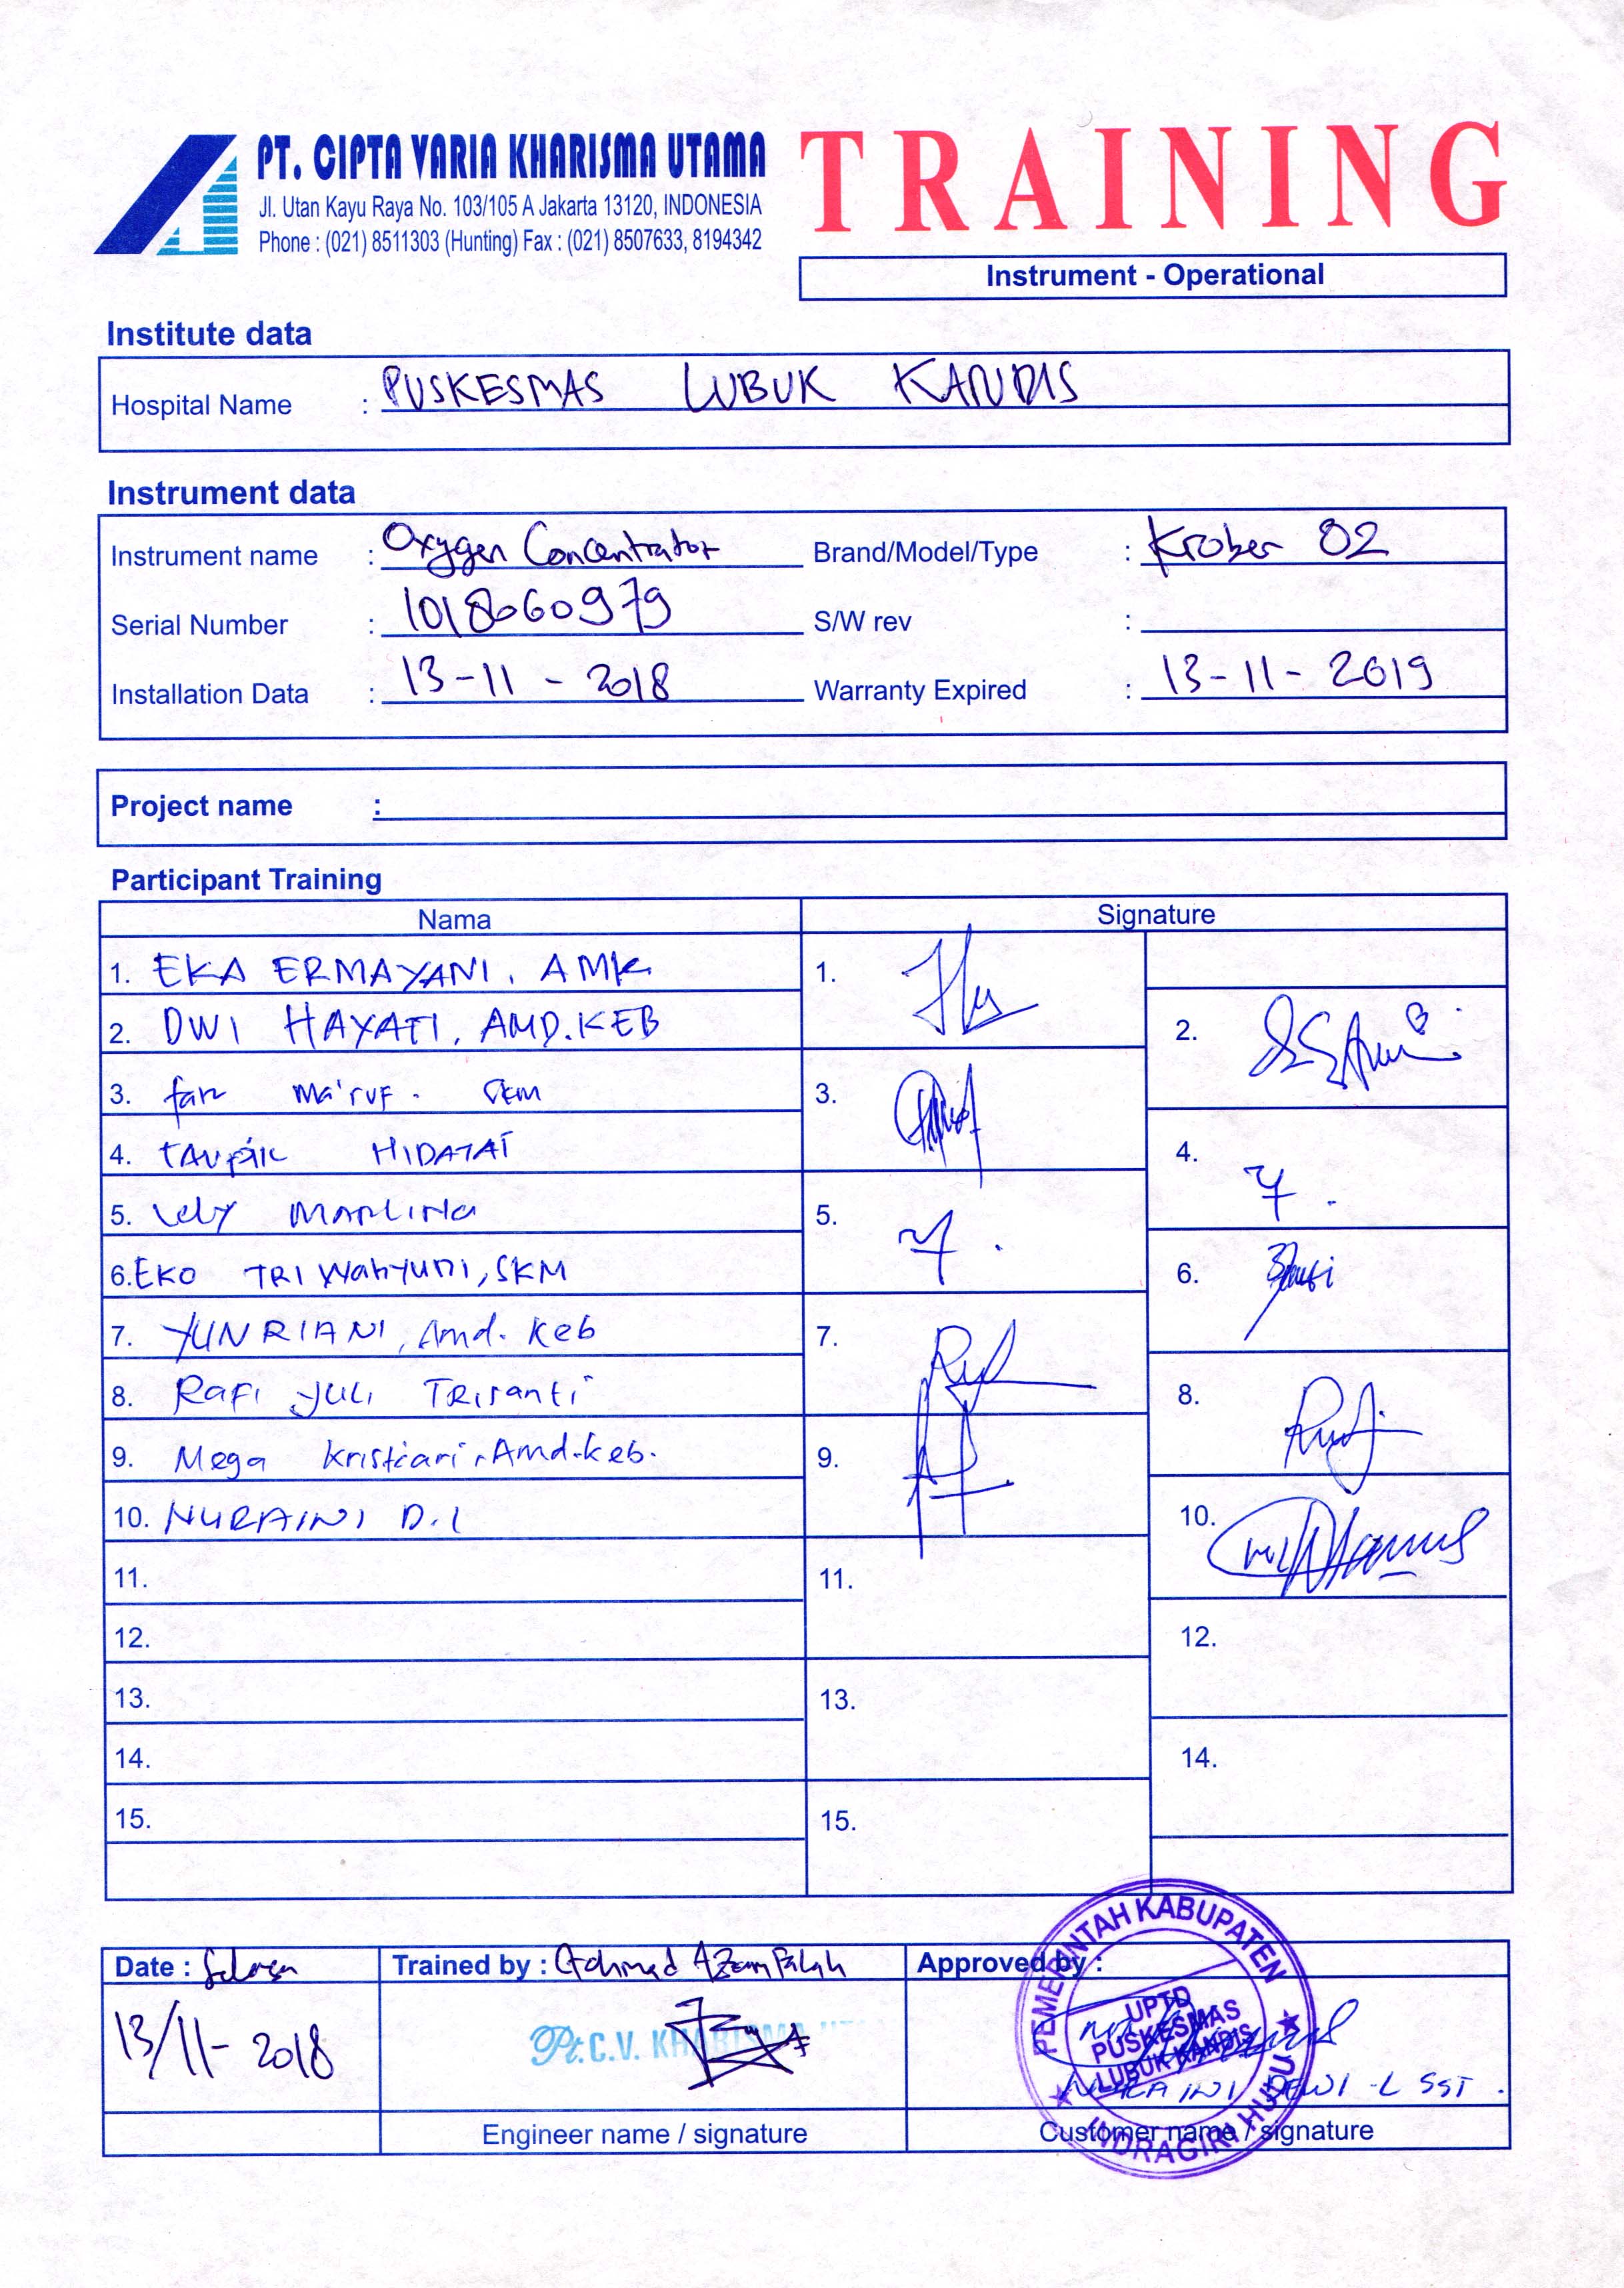 PT. CIPTA VARIA KHARISMA UTAMA
Jl. Utan Kayu Raya No. 103/105 A Jakarta 13120, INDONESIA
Phone : (021) 8511303 (Hunting) Fax : (021) 8507633, 8194342
TRAINING
Instrument - Operational
Institute data
Hospital Name : PUSKESMAS LUBUK KANDIS
Instrument data
Instrument name : Oxygen Concentrator Brand/Model/Type : Krober O2
Serial Number : 1018060979 S/W rev :
Installation Data : 13-11-2018 Warranty Expired : 13-11-2019
Project name :
Participant Training
Nama Signature
1. EKA ERMAYANI, AMK 1.
2. DWI HAYATI, AMD.KEB 2.
3. Ma'ruf. SKM 3.
4. TAUPIK HIDAYAT 4.
5. MARLINA 5.
6. EKO TRI WAHYUNI, SKM 6.
7. YUNRIANI, Amd. Keb 7.
8. Rafi Yuli Trisanti 8.
9. Mega Kristiari, Amd.Keb. 9.
10. NURAINI D.L 10.
11. 11.
12. 12.
13. 13.
14. 14.
15. 15.
Date : Selasa Trained by : Achmad Azam Falah Approved by :
13/11-2018
Pt. C.V. KHARISMA UTA
PEMERINTAH KABUPATEN
UPTD
PUSKESMAS
LUBUK KANDIS
INDRAGIRI HULU
NURAINI DEWI L SST.
Engineer name / signature Customer name / signature